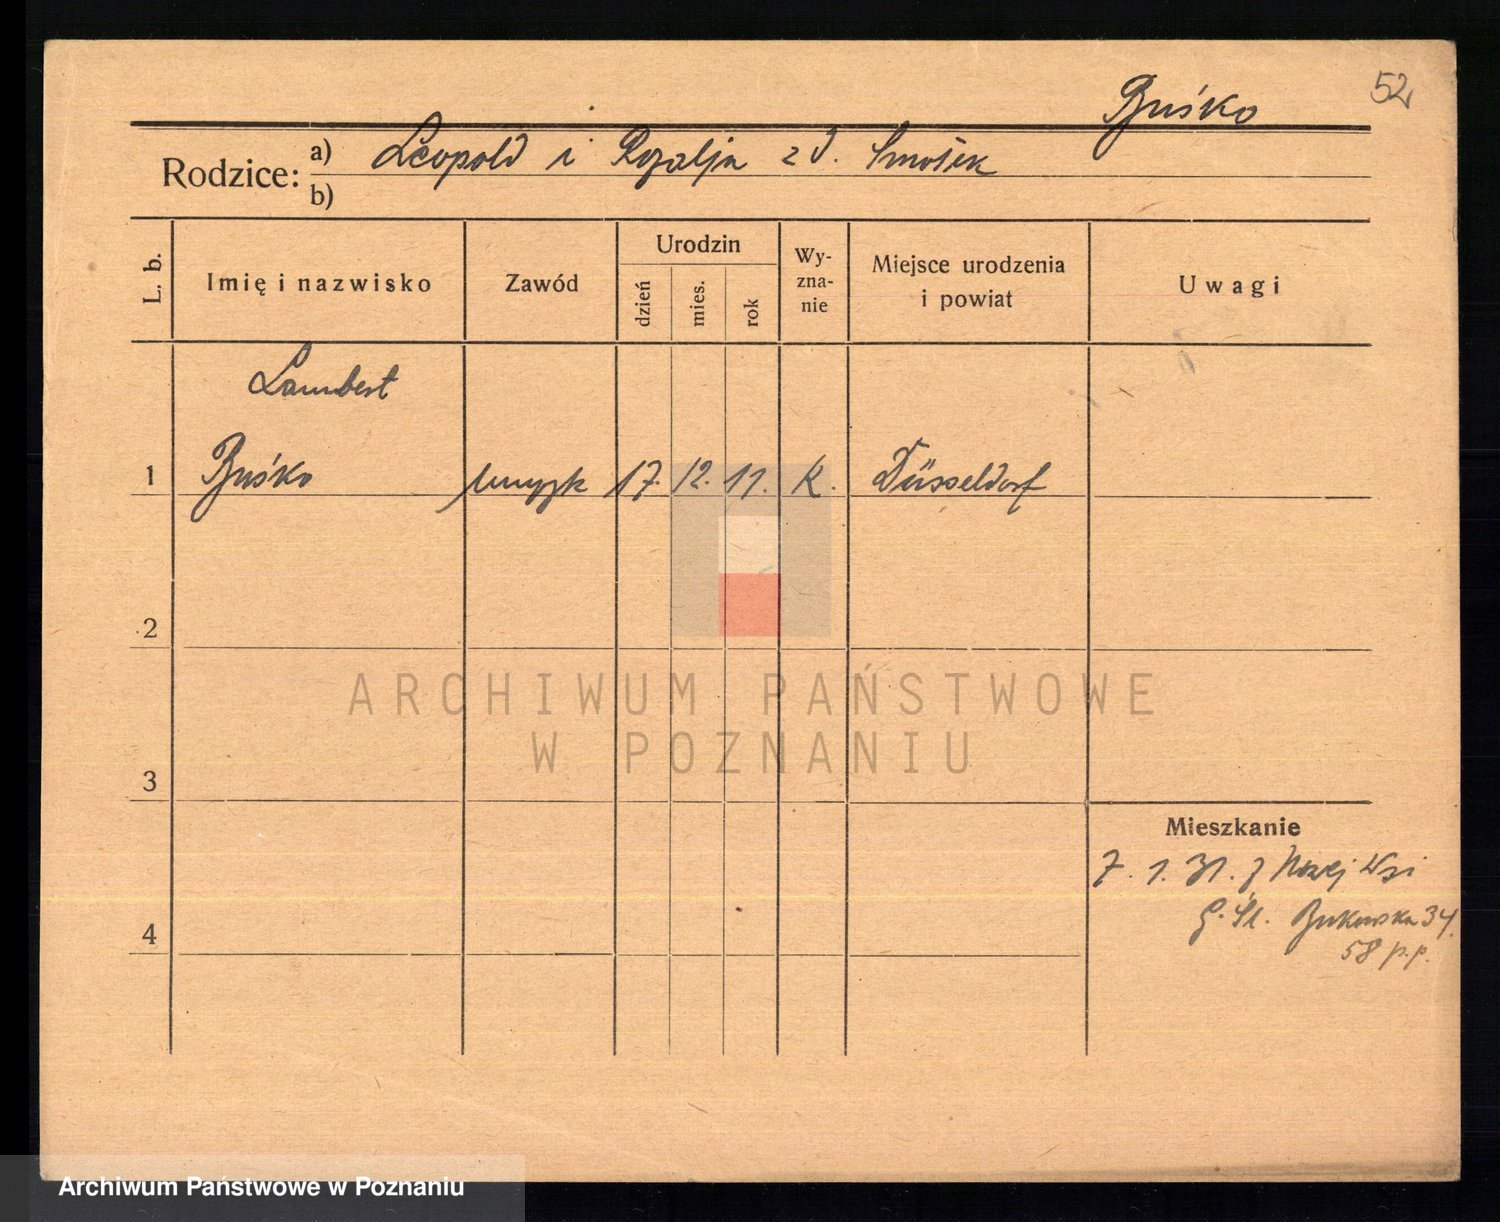 Buśko
52
Rodzice: a) Leopold i Rozalja z d. Smošek
b)
L. b.
Imię i nazwisko
Zawód
Urodzin
dzień
mies.
rok
Wy-
zna-
nie
Miejsce urodzenia
i powiat
Uwagi
Lambert
1 Buśko muzyk 17. 12. 11. R. Düsseldorf
2
ARCHIWUM PAŃSTWOWE
W POZNANIU
3
Mieszkanie
7. 1. 31. z Nowej Wsi
G. Śl. Bukowska 34.
58 p.p.
4
Archiwum Państwowe w Poznaniu